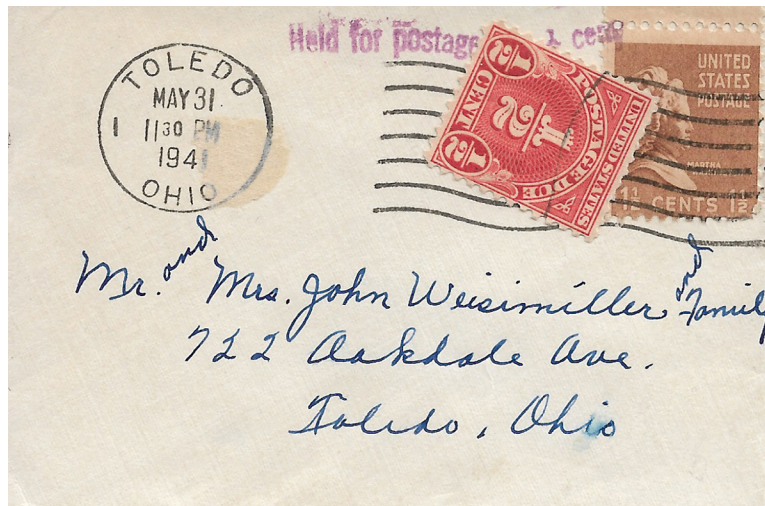 Held for postage 1 cent
TOLEDO
MAY 31
11 30 PM
1941
OHIO
1
1/2
CENT
1/2
1/2
POSTAGE DUE
UNITED STATES
UNITED
STATES
POSTAGE
MARTHA
1 1/2 CENTS 1 1/2
Mr. and Mrs. John Weisimiller and Family
722 Oakdale Ave.
Toledo, Ohio